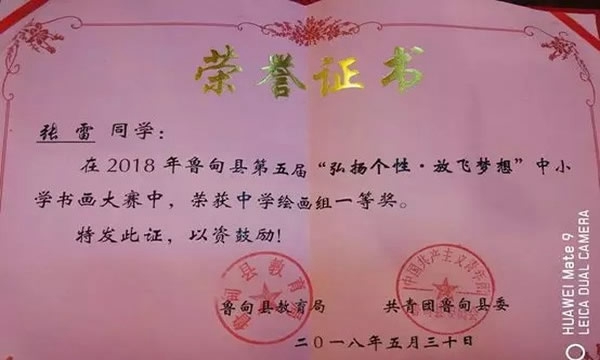 荣誉证书
张雷 同学：
在2018年鲁甸县第五届“弘扬个性·放飞梦想”中小
学书画大赛中，荣获中学绘画组一等奖。
特发此证，以资鼓励！
鲁甸县教育局 共青团鲁甸县委
二〇一八年五月三十日
HUAWEI Mate 9
LEICA DUAL CAMERA